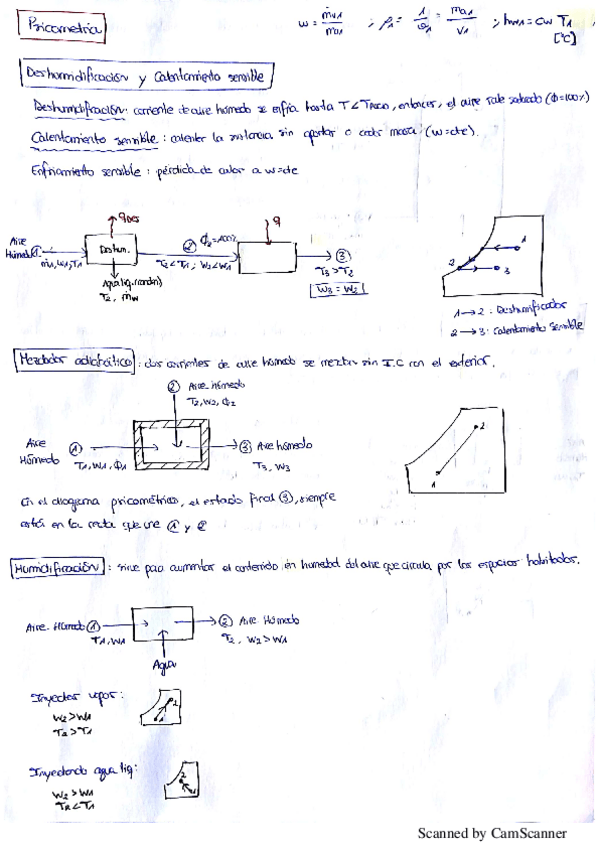 Psicometría
w = ṁv1/ṁa1 ; ρ1 = 1/v1 = ma1/V1 ; hw1 = cw T1
[ºC]
Deshumidificación y Calentamiento sensible
Deshumidificación: corriente de aire húmedo se enfría hasta T<TROCIO, entonces, el aire sale saturado (ϕ=100%)
Calentamiento sensible: calentar la sustancia sin aportar o ceder masa. (w=cte).
Enfriamiento sensible: pérdida de calor a w=cte
qDes
q
Aire
Húmedo ①
ṁ1, w1, T1
Deshum.
② ϕ2=100%
T2<T1; w2<w1
③
T3>T2
w3 = w2
Agua liq.
T2, ṁw
1
2
3
1→2: Deshumificador
2→3: Calentamiento sensible
Mezclador adiabático: dos corrientes de aire húmedo se mezclan sin I.C con el exterior.
② Aire húmedo
T2, w2, ϕ2
Aire
Húmedo
①
T1, w1, ϕ1
③ Aire húmedo
T3, w3
1
2
En el diagrama psicométrico, el estado final ③, siempre
estará en la recta que une ① y ②
Humidificación: sirve para aumentar el contenido en humedad del aire que circula por los espacios habitados.
Aire Húmedo ①
T1, w1
② Aire Húmedo
T2, w2>w1
Agua
Inyectar vapor:
w2>w1
T2>T1
1
2
Inyectando agua liq:
w2>w1
T2<T1
2
1
Scanned by CamScanner